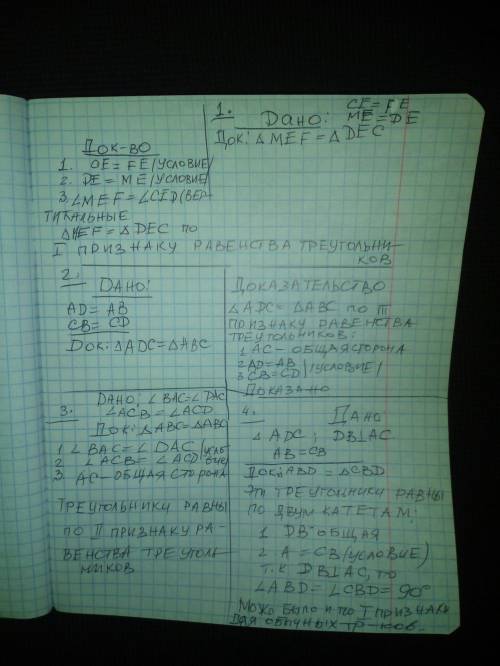 1. Дано: CE = FE
ME = DE
Док: △ MEF = △ DEC
Док-во
1. CE = FE /условие/
2. DE = ME /условие/
3. ∠MEF = ∠CED (вер-
тикальные
△MEF = △DEC по
I признаку равенства треугольни-
ков
2. Дано:
AD = AB
CB = CD
Док: △ADC = △ABC
Доказательство
△ ADC = △ABC по III
признаку равенства
треугольников:
1 AC - общая сторона
2 AD = AB
3 CB = CD / /условие/
Доказано
3. Дано: ∠BAC = ∠DAC
∠ACB = ∠ACD
Док: △ABC = △ADC
1 ∠BAC = ∠DAC /усло-
2 ∠ACB = ∠ACD вие/
3. AC - общая сторона
Треугольники равны
по II признаку ра-
венства треуголь-
ников
4. Дано
△ ADC; DB⊥AC
AB = CB
Док: ABD = △CBD
Эти треугольники равны
по двум катетам:
1 DB - общая
2 A = CB (условие)
т.к DB⊥AC, то
∠ABD = ∠CBD = 90°
Можо было и по I признаку
для обычных тр-ков.